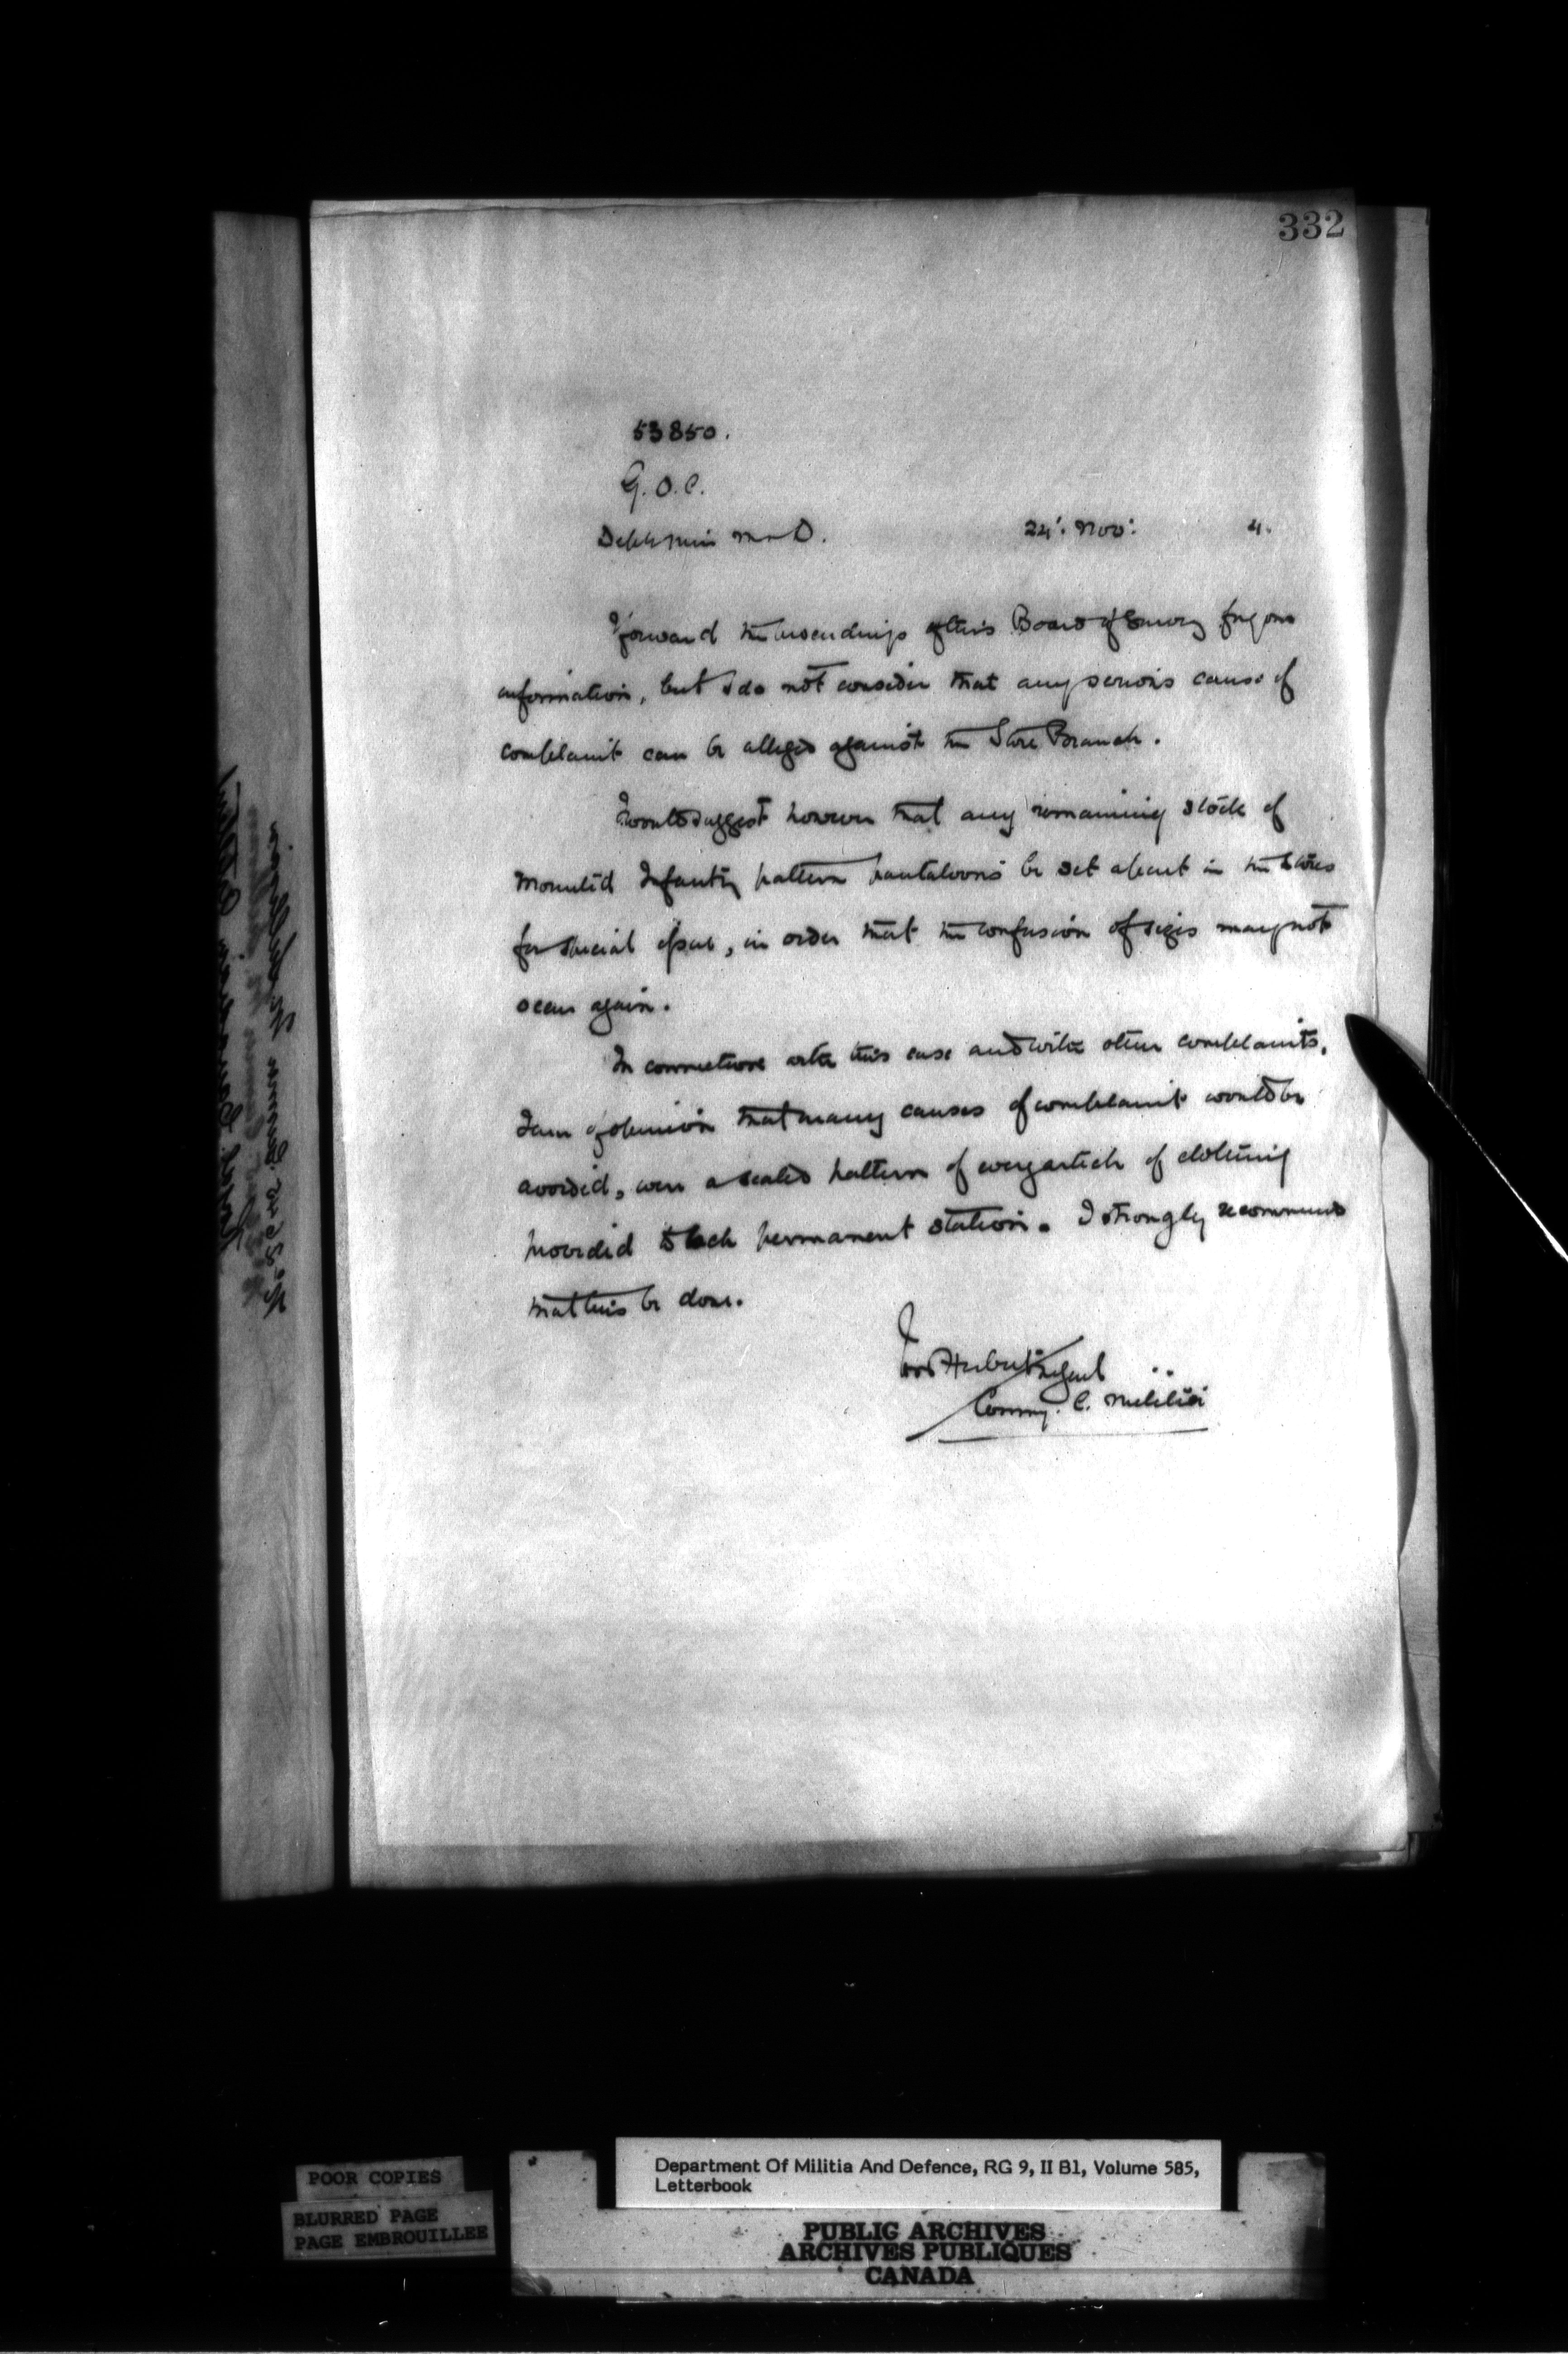 332
53850.
G.O.C.
Dep Min M & D. 24th: Nov: 4.
I forward the proceedings of this Board of Survey for your
information, but I do not consider that any serious cause of
complaint can be alleged against the Store Branch.
I would suggest however that any remaining stock of
Mounted Infantry pattern pantaloons be set apart in the Stores
for special issue, in order that the confusion of sizes may not
occur again.
In connection with this case and with other complaints,
I am of opinion that many causes of complaint would be
avoided, were a sealed pattern of every article of clothing
provided to each permanent station. I strongly recommend
that this be done.
Ivor Herbert M Genl
Commg. C. Militia
POOR COPIES
BLURRED PAGE
PAGE EMBROUILLEE
Department Of Militia And Defence, RG 9, II B1, Volume 585,
Letterbook
PUBLIC ARCHIVES
ARCHIVES PUBLIQUES
CANADA